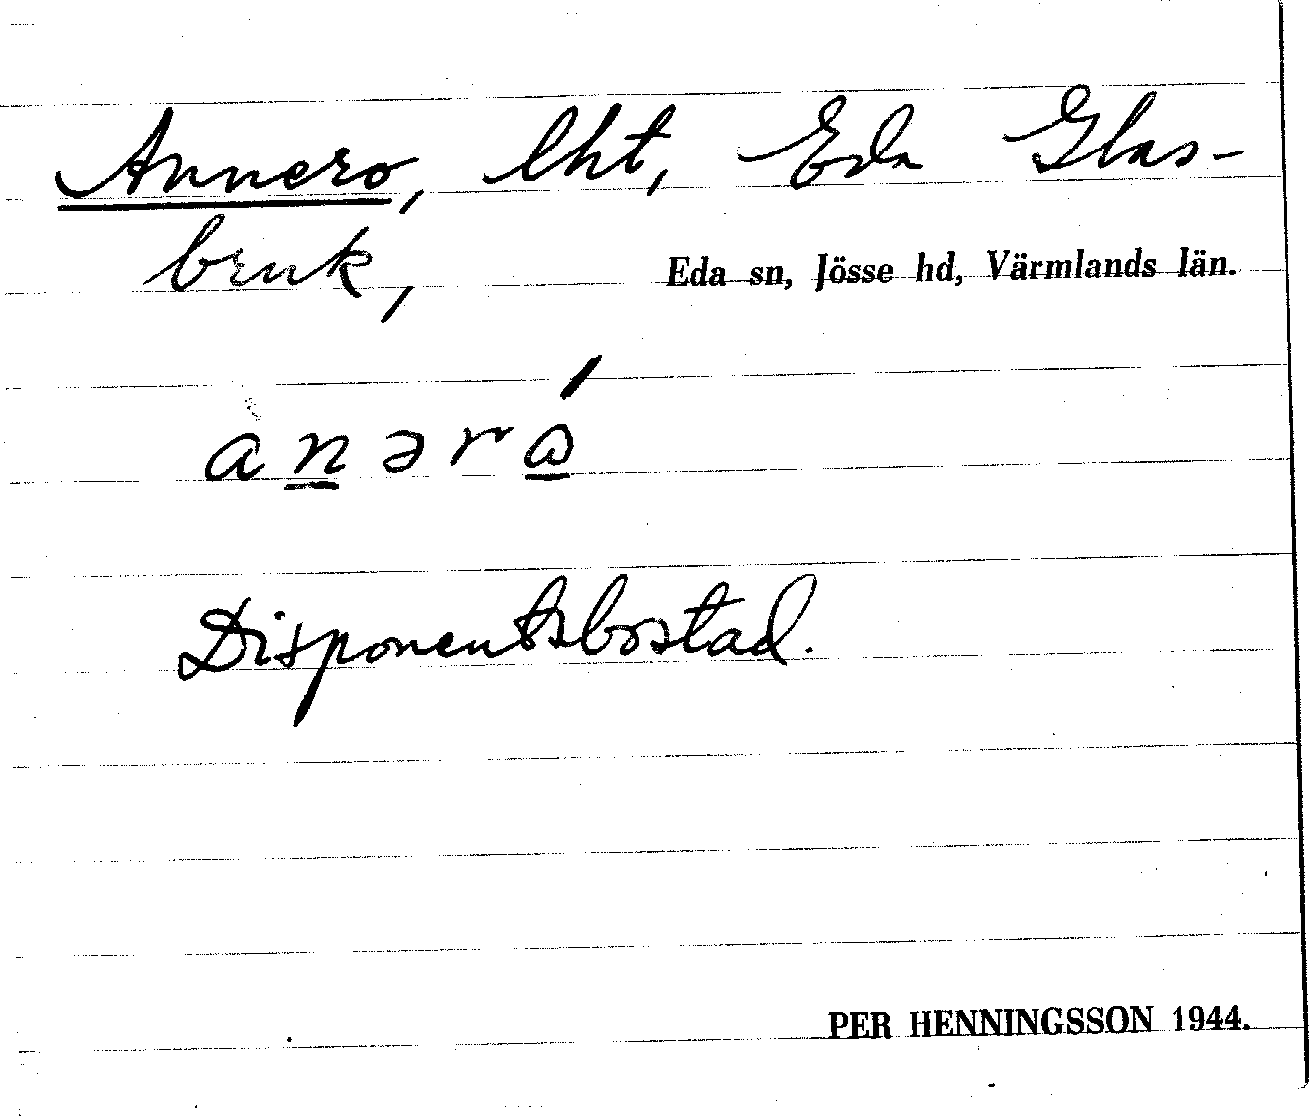 Annero, lht, Eda Glas-
bruk,
Eda sn, Jösse hd, Värmlands län.
a n̲ ə r ώ̲
Disponentsbostad.
PER HENNINGSSON 1944.